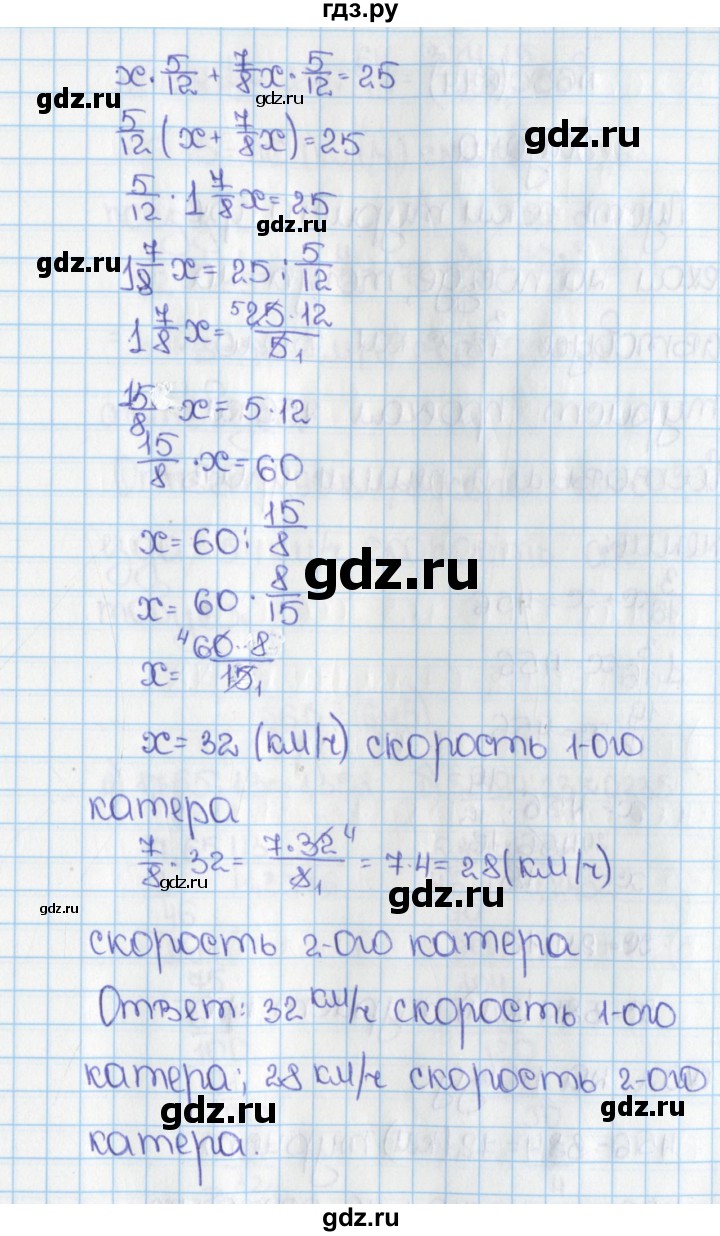 гдз.ру
x · 5/12 + 7/8 x · 5/12 = 25
gdz.ru
gdz.ru
5/12 (x + 7/8 x) = 25
gdz.ru
5/12 · 1 7/8 x = 25
gdz.ru
1 7/8 x = 25 : 5/12
gdz.ru
1 7/8 x = 5 25·12/5 1
15/8 · x = 5·12
15/8 · x = 60
x = 60 : 15/8
gdz.ru
x = 60 · 8/15
x = 4 60·8/15 1
x = 32 (км/ч) скорость 1-ого
катера
7/8 · 32 = 7·32 4/8 1 = 7·4 = 28 (км/ч)
gdz.ru
gdz.ru
gdz.ru
скорость 2-ого катера
Ответ: 32 км/ч скорость 1-ого
катера; 28 км/ч скорость 2-ого
gdz.ru
gdz.ru
катера.
gdz.ru